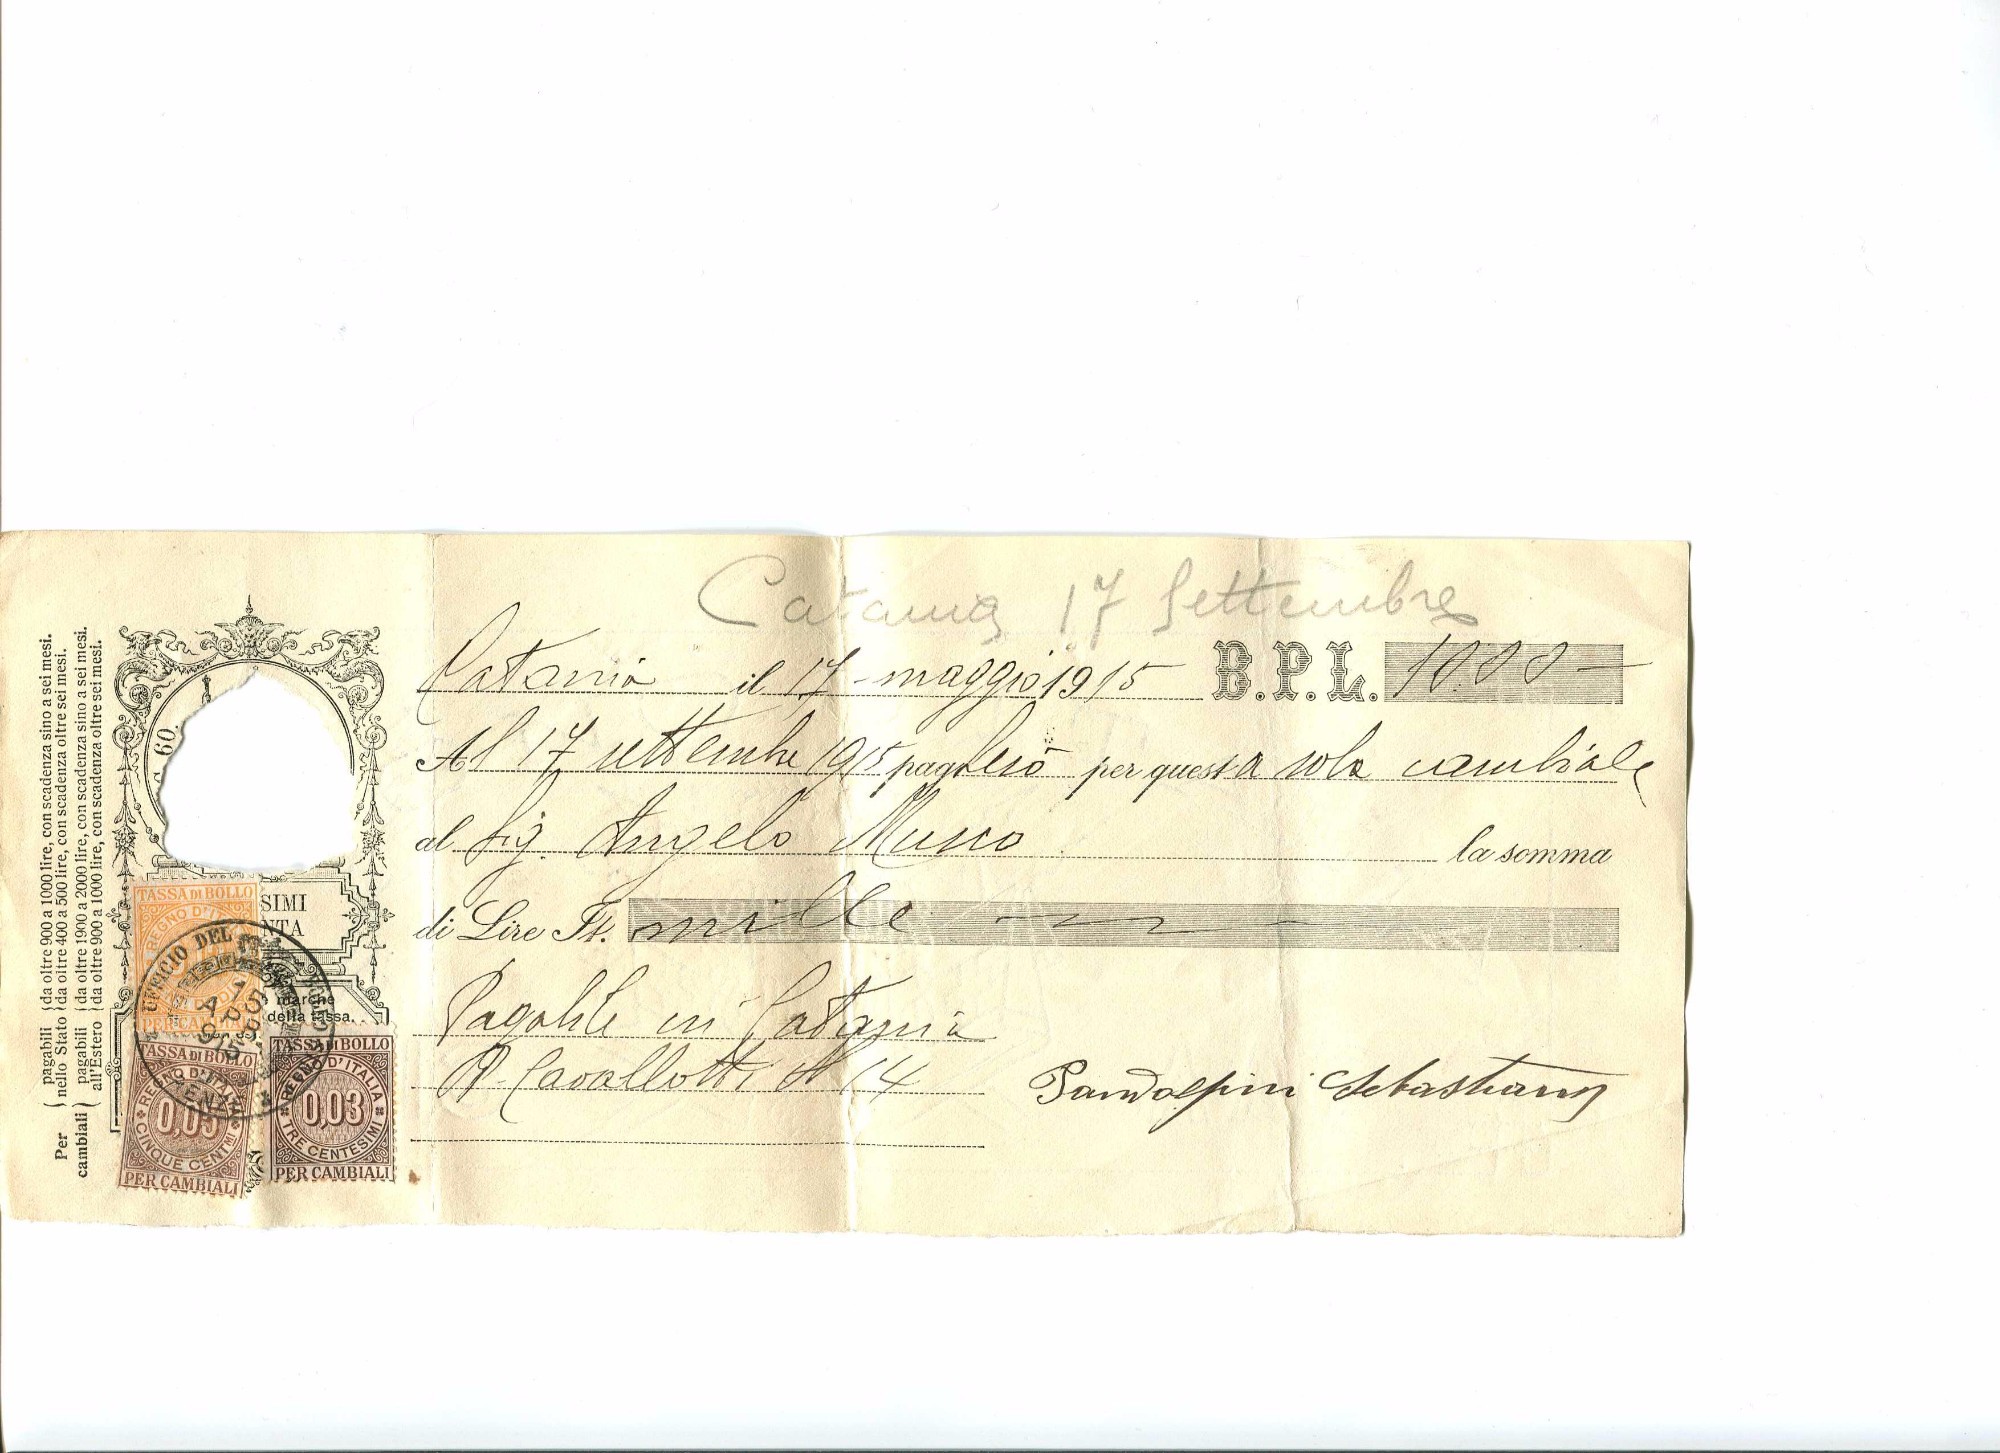 Catania 17 Settembre
Catania il 17 maggio 1915 B.P.L. 1000 —
Al 17 settembre 1915 pagherò per questa sola cambiale
al Sig. Angelo Musco la somma
di Lire It. mille
Pagabile in Catania
P. Cavallotti N 14
Pandolfini Sebastiano
Per cambiali
pagabili nello Stato
da oltre 900 a 1000 lire, con scadenza sino a sei mesi.
da oltre 400 a 500 lire, con scadenza oltre sei mesi.
pagabili all'Estero
da oltre 1900 a 2000 lire, con scadenza sino a sei mesi.
da oltre 900 a 1000 lire, con scadenza oltre sei mesi.
C. 60.
SIMI
NTA
marche
della tassa.
TASSA DI BOLLO
REGNO D'IT
PER CAMBIA
UFFICIO DEL BOLLO
15
AP
915
TASSA DI BOLLO
REGNO D'ITALIA
0,05
CINQUE CENTMI
PER CAMBIALI
TASSA DI BOLLO
REGNO D'ITALIA
0,03
TRE CENTESIMI
PER CAMBIALI